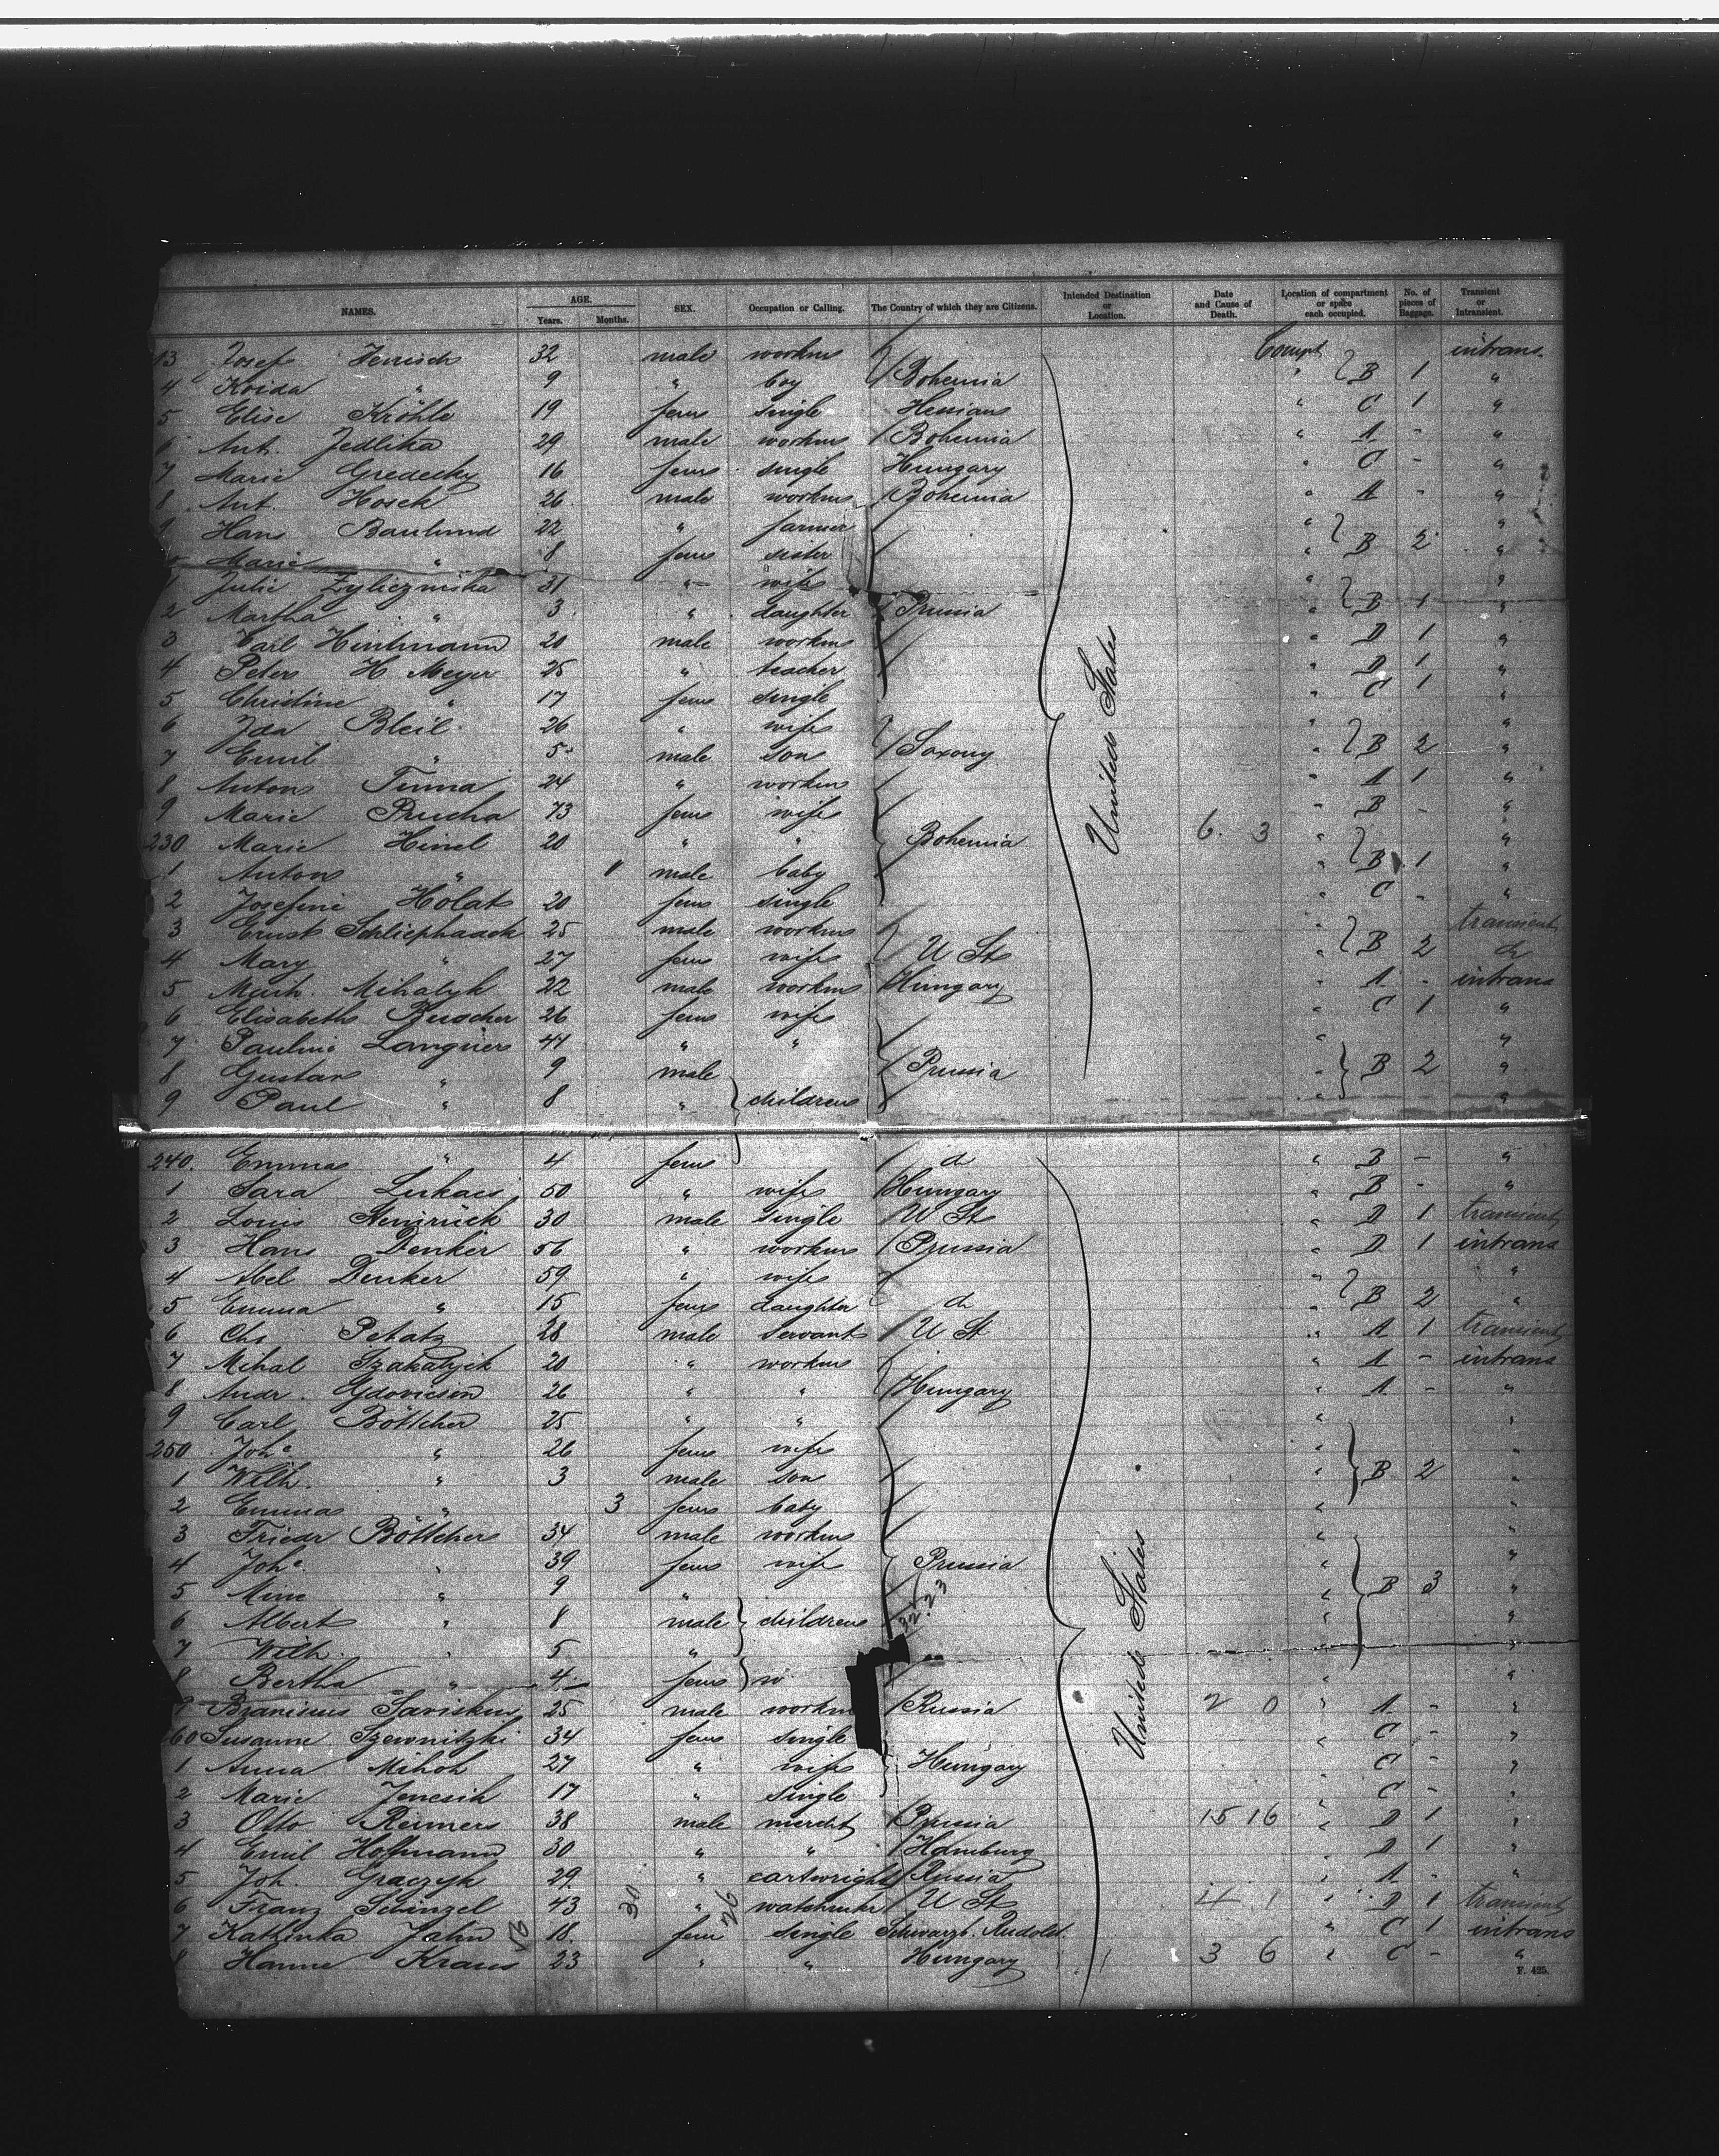 NAMES. AGE. Years. Months. SEX. Occupation or Calling. The Country of which they are Citizens. Intended Destination or Location. Date and Cause of Death. Location of compartment or space each occupied. No. of pieces of Baggage. Transient or Intransient.
13 Josef 32 male workm Compt intrans.
4 " 9 " boy Bohemia " B 1 "
5 Elise Kröhle 19 fem single Hessians " C 1 "
6 Ant. Jedlika 29 male workm Bohemia " A - "
7 Marie Gredecky 16 fem single Hungary " C - "
8 Ant. Hosek 26 male workm Bohemia " A - "
9 Hans Baulund 22 " farmer " "
Marie " 8 fem sister " B 2 "
1 Julie Zyliczniska 31 " wife " "
2 Martha " 3 " daughter Prussia " B 1 "
3 Carl Hintmann 20 male workm " D 1 "
4 Peter H Meyer 25 " teacher " D 1 "
5 Christine " 17 fem single " C 1 "
6 Ida Bleil 26 " wife " "
7 Emil " 5 male son Saxony " B 2 "
8 Anton Tuma 24 " workm " A 1 "
9 Marie Prucha 73 fem wife " B - "
230 Marie Hinel 20 " " Bohemia 6. 3 " "
1 Anton " male baby " B 1 "
2 Josefine Holat 20 fem single " C - "
3 Ernst Schliephaack 25 male workm transient
4 Mary " 27 fem wife U St " B 2 do
5 Mich. Mihalyk 22 male workm Hungary " A - intrans
6 Elisabeth 26 fem wife " C 1 "
7 Pauline Languer 44 " " " "
8 Gustav " 9 male Prussia " B 2 "
9 Paul " 8 " children " "
240. Emma " 4 fem do " B - "
1 Sara Lukacs 50 " wife Hungary " B - "
2 Louis Henirück 30 male single U St " D 1 transient
3 Hans Denker 56 " workm Prussia " D 1 intrans
4 Abel Denker 59 " wife " "
5 Emma " 15 fem daughter do " B 2 "
6 Chs Petatz 28 male servant U St " A 1 transient
7 Mihal Szakalyik 20 " workm " A - intrans
8 Andr. Gdovicsin 26 " " Hungary " A - "
9 Carl Böttcher 25 " " " "
250 Joh^e " 26 fem wife " "
1 Wilh. " 3 male son " B 2 "
2 Emma " 3 fem baby " "
3 Friedr Böttcher 34 male workm " "
4 Joh^e " 39 fem wife Prussia " "
5 Mine " 9 " " B 3 "
6 Albert " 8 male children " "
7 Wilh. " 5 " " "
8 Bertha " 4 fem " "
9 Saviskus 25 male workm Russia 2 0 " A - "
60 Susanne Szewnitzki 34 fem single " C - "
1 Anna Mihok 27 " wife Hungary " C - "
2 Marie Jencsik 17 " single " C - "
3 Otto Reimers 38 male mercht Prussia 15 16 " D 1 "
4 Emil Hoffmann 30 " " Hamburg " D 1 "
5 Joh. Graczyk 29 " cartwright Russia " A - "
6 Franz Schinzel 43 " U St " D 1 transient
7 Kathinka Jahn 18. fem single Schwarzb. Rudolst. " C 1 intrans
8 Hanne Kraus 23 " " Hungary 3 6 " C - "
United States
United States
F. 425.